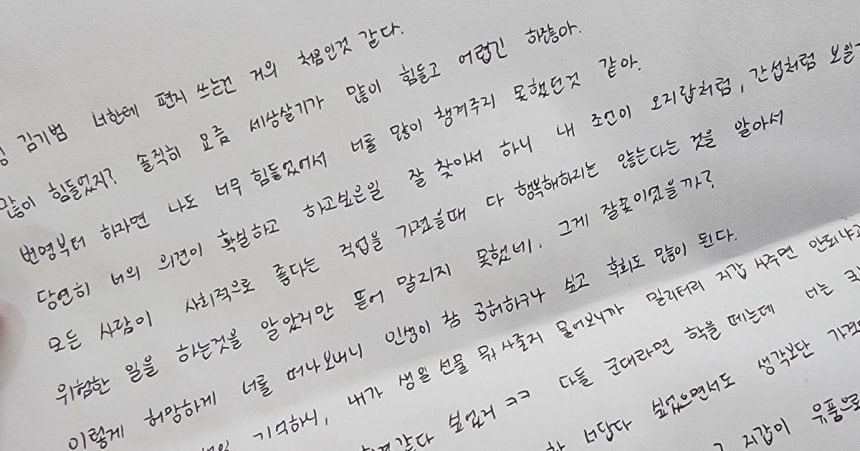 김기범 너한테 편지 쓰는건 거의 처음인것 같다.
많이 힘들었지? 솔직히 요즘 세상살기가 많이 힘들고 어렵긴 하잖아.
변명부터 하자면 나도 너무 힘들었어서 너를 많이 챙겨주지 못했던것 같아.
당연히 너의 의견이 확실하고 하고보은일 잘 찾아서 하니 내 조언이 오지랍처럼, 간섭처럼 보일
모든 사람이 사회적으로 좋다는 직업을 가졌을때 다 행복해하지는 않는다는 것을 알아서
위험한 일을 하는것을 알았지만 뜯어 말리지 못했네. 그게 잘못이었을까?
이렇게 허망하게 너를 떠나보내니 인생이 참 공허하구나 싶고 후회도 많이 된다.
기억하니, 내가 생일 선물 뭐 사줄지 물어보니까 밀리터리 지갑 사주면 안되냐고
같다 싶었거 ㅋㅋ 다들 군대라면 학을 떼는데 너는
너답다 싶었으면서도 생각보단
지갑이 유품으로